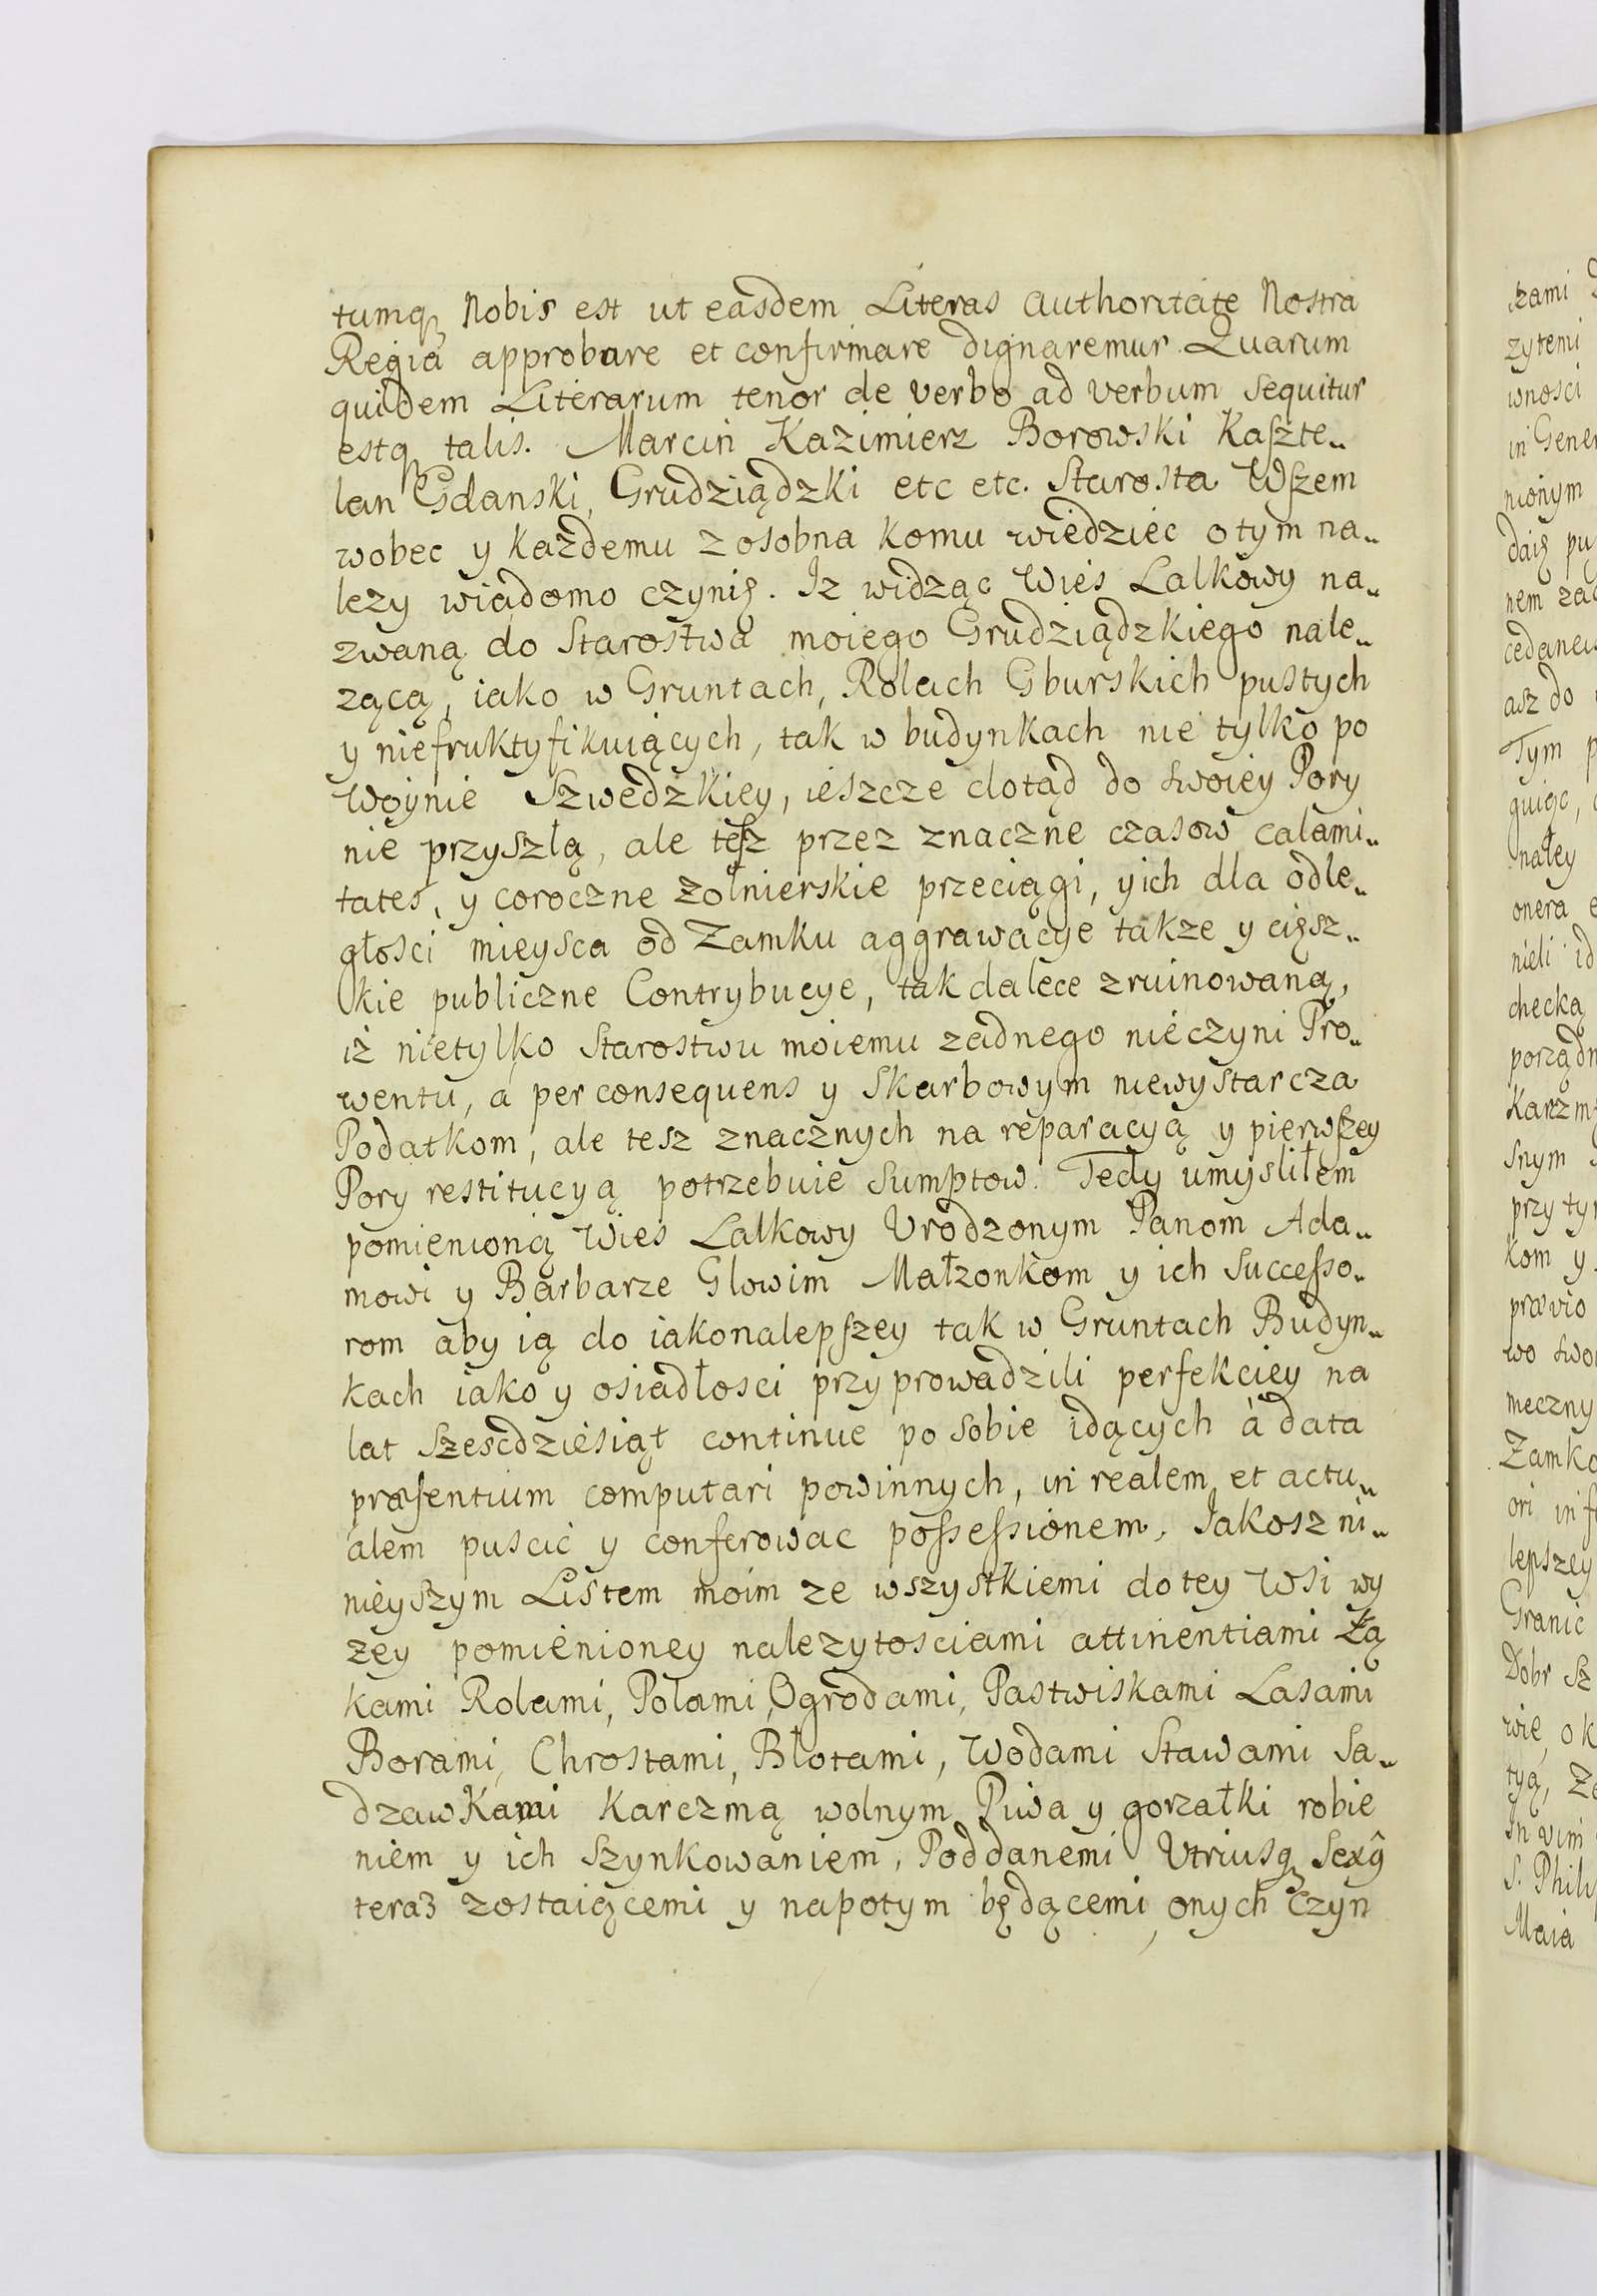 tumqꝫ Nobis est ut easdem Literas Authoritate Nostra
Regia approbare et confirmare dignaremur. Quarum
quidem Literarum tenor de verbo ad verbum sequitur
estqꝫ talis. Marcin Kazimierz Borowski Kaszte„
lan Gdanski, Grudziądzki etc etc. Starosta Wszem
wobec y każdemu z osobna komu wiedziec o tym na„
lezy wiadomo czynię. Iz widząc Wies Lalkowy na„
zwaną do Starostwa moiego Grudziądzkiego nale„
zącą, iako w Gruntach, Rolach Gburskich pustych
y niefruktyfikuiących, tak w budynkach nie tylko po
Woynie Szwedzkiey, ieszcze dotąd do swoiey Pory
nie przyszłą, ale tesz przez znaczne czasow calami„
tates, y coroczne zołnierskie przeciągi, y ich dla odle„
głosci mieysca od Zamku aggrawacye takze y cięsz„
kie publiczne Contrybucye, tak dalece zruinowaną,
iż nietylko Starostwu moiemu zadnego nieczyni Pro„
wentu, a per consequens y Skarbowym niewystarcza
Podatkom, ale tesz znacznych na reparacyą y pierwszey
Pory restitucyą potrzebuie sumptow. Tedy umysliłem
pomienioną Wies Lalkowy Urodzonym Panom Ada„
mowi y Barbarze Glowim Małzonkom y ich Successo„
rom aby ią do iakonalepszey tak w Gruntach Budyn„
kach iako y osiadłosci przyprowadzili perfekciey na
lat szescdziesiąt continue po sobie idących à data
præsentium computari powinnych, in realem et actu„
alem puscic y conferowac possessionem, Iakosz ni„
nieyszym Listem moim ze wszystkiemi do tey Wsi wy
zey pomienioney nalezytosciami attinentiami Łą
kami Rolami, Polami, Ogrodami, Pastwiskami Lasami
Borami, Chrostami, Błotami, Wodami Stawami Sa„
dzawkami Karczmą wolnym Piwa y gorzałki robie
niem y ich szynkowaniem, Poddanemi Utriusqꝫ Sexꝰ
teraz zostaiącemi y napotym będącemi, onych czyn
żami
zytemi
wnosci
in Gener
nionym
daię pu
nem
asz do
Tym p
nałey
onera e
nieli id
checką
porządn
Karzm
snym
przy ty
kom y
prævio
wo swo
meczny
Zamko
ori in
lepszey
Granic
Dobr Sz
wie, ok
S. Phili
Maia